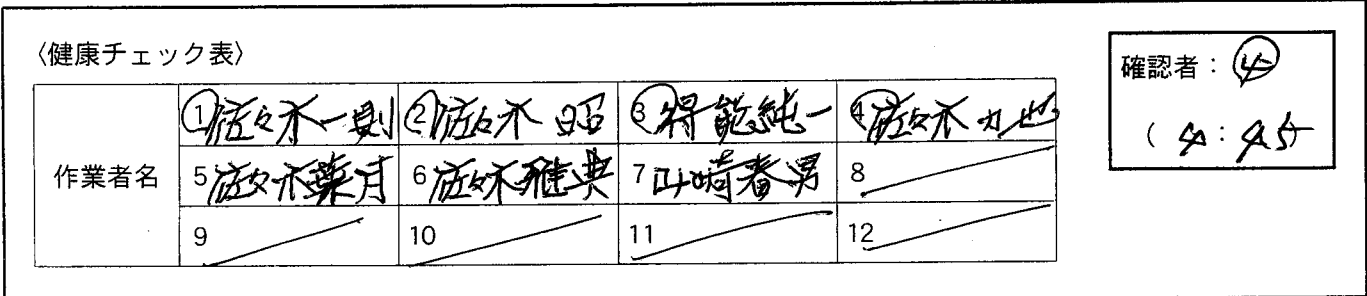 〈健康チェック表〉
確認者：④
（4：45
作業者名
①佐々木一則 ②佐々木 昭 ③得能純一 ④佐々木力也
5 佐々木葉月 6 佐々木雅典 7 山崎春男 8
9 10 11 12